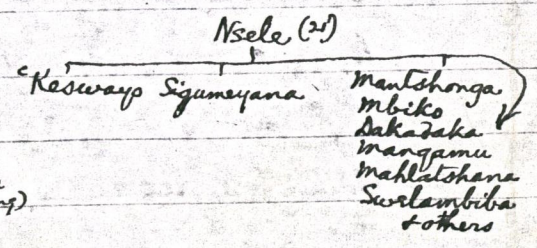 Nsele (21)
Keswayo Sigumeyana Mantshonga
Mbiko
Dakadaka
Mangamu
Mahlatshana
Swelambiba
& others